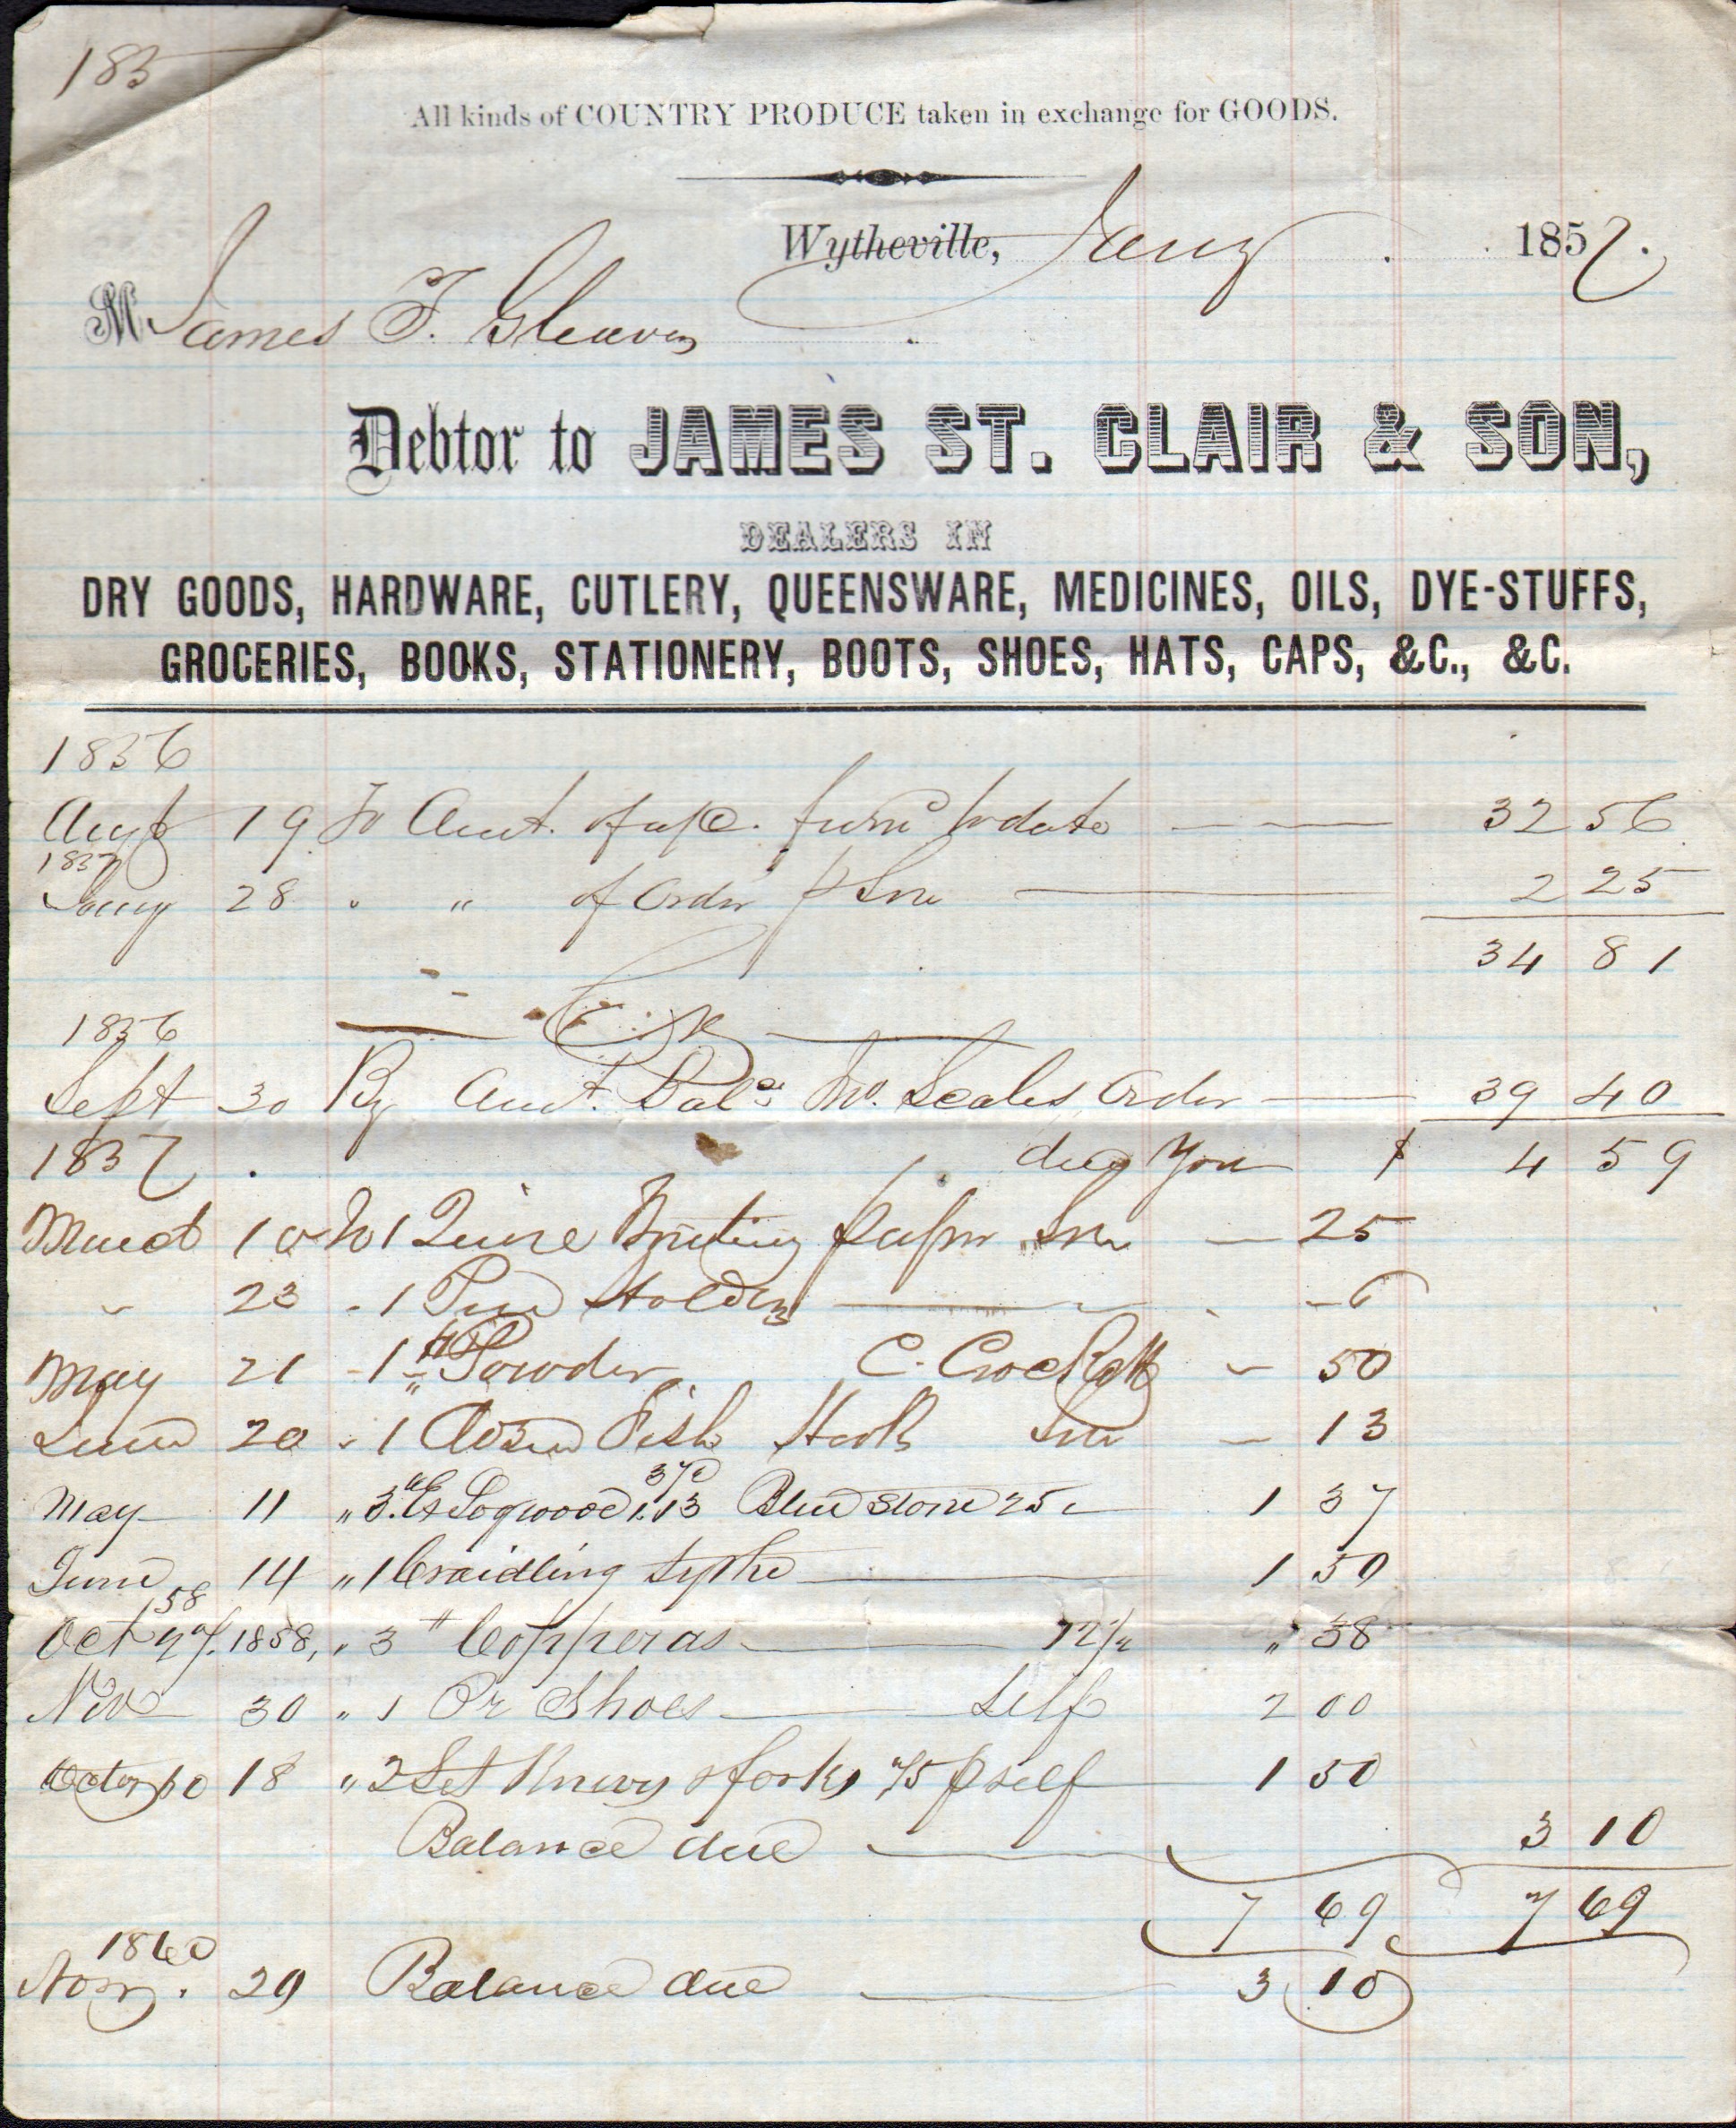 185
All kinds of COUNTRY PRODUCE taken in exchange for GOODS.
Wytheville, Jany 1857.
M James T. Gleaves
Debtor to JAMES ST. CLAIR & SON,
DEALERS IN
DRY GOODS, HARDWARE, CUTLERY, QUEENSWARE, MEDICINES, OILS, DYE-STUFFS,
GROCERIES, BOOKS, STATIONERY, BOOTS, SHOES, HATS, CAPS, &C., &C.
1856
Augt 19 To Amt. of a/c. furnd to date 32 56
1857
Jany 28 " " of Order p Son 2 25
34 81
1856 Cr
Sept 30 By Amt. Bale Jno. Scales Order 39 40
1857 due You $ 4 59
March 10 To 1 Quire Writing paper Son 25
" 23 " 1 Pen Holder 6
May 21 " 1 # Powder C. Crockett 50
June 20 " 1 Dozen Fish Hooks Son 13
May 11 " 3 # Ex Logwood 37½ 1.13 Blue Stone 25c 1 37
June 14 " 1 Craidling Sythe 1 50
58
Oct 27. 1858, " 3 # Copperas 12½ " 38
Nov 30 " 1 Pr Shoes Self 2 00
Octor 60 18 " 2 Set Knives & forks 75 p self 1 50
Balance due 3 10
7 69 7 69
1860
Nov. 29 Balance due 3 10